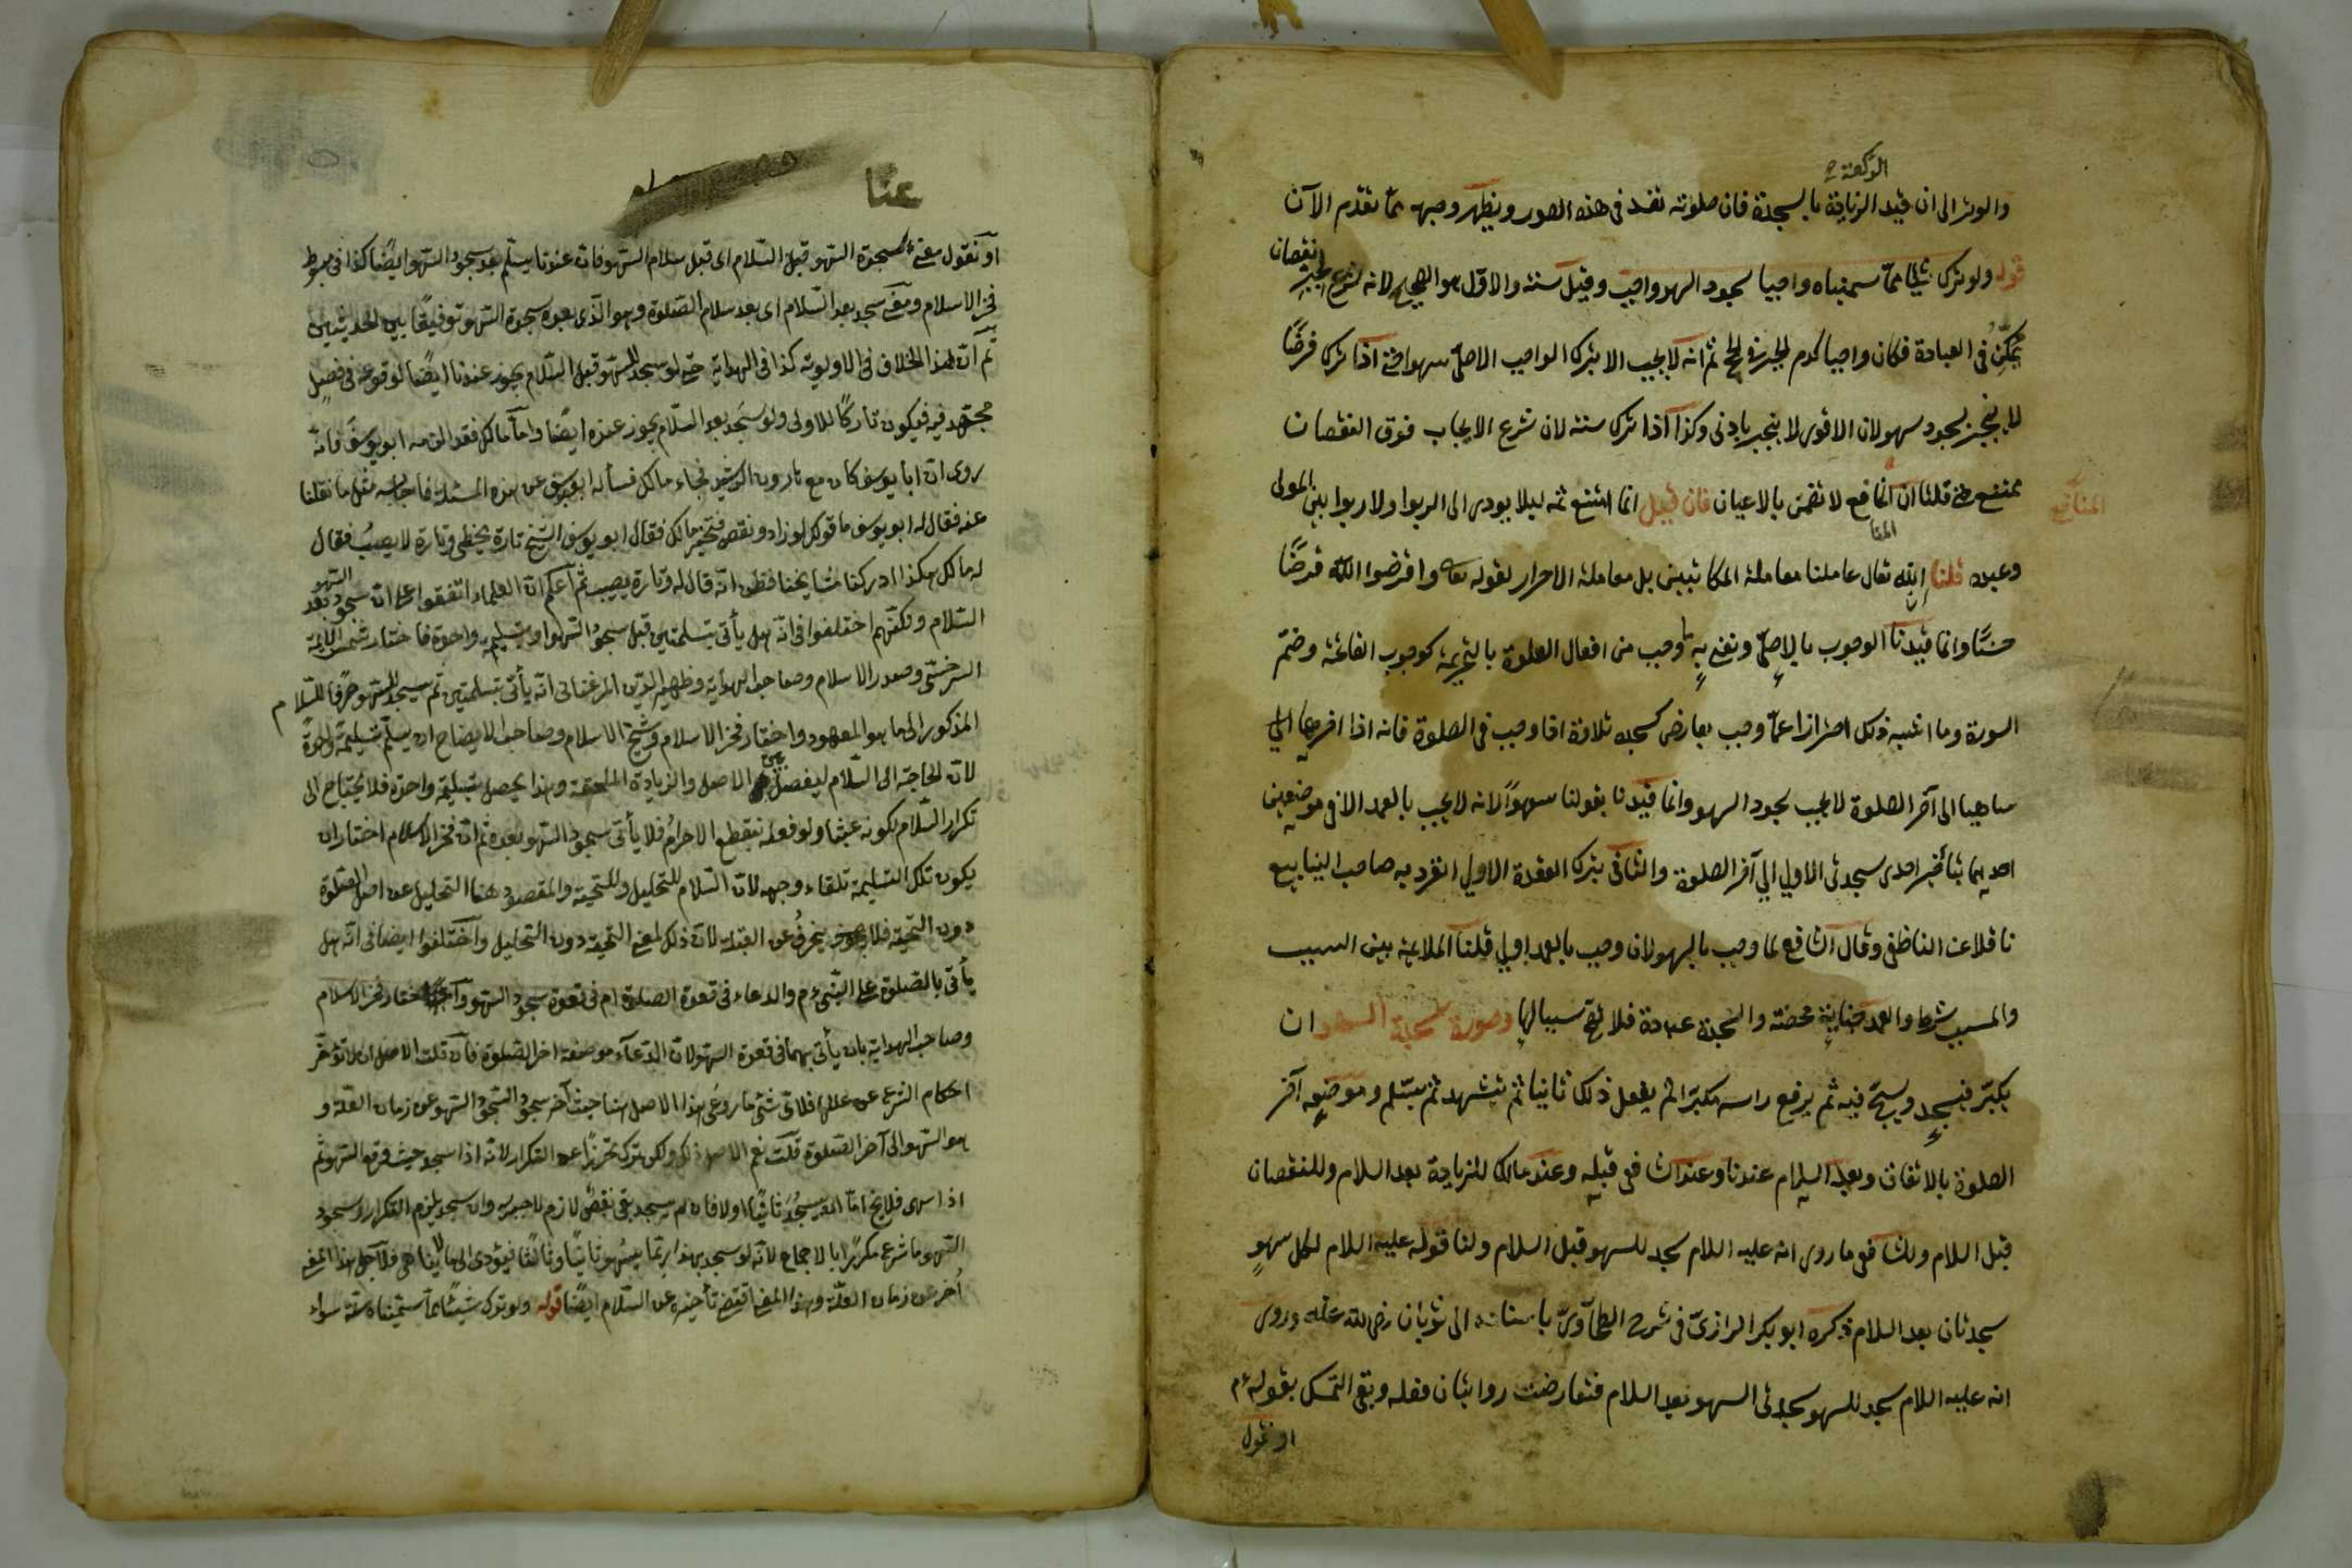 الركعة
والوتر الى ان قيد الزيادة بالسجدة فان صلوته تفسد فى هذه الصور ويظهر وجهه مما تقدم الآن
قوله ولو ترك شيئا مما سميناه واجبا سجود السهو واجب وقيل سنته والاول هو الصحيح لانه شرع لجبر نقصان
تمكن فى العبادة فكان واجبا كدم الجبر فى الحج ثم انه لا يجب الا بترك الواجب الاصلى سهوا حتى اذا ترك فرضا
لا ينجبر بسجود سهو لان الاقوى لا ينجبر بادنى وكذا اذا ترك سنته لان شرع الايجاب فوق النقصان
ممتنع حتى قلنا ان المنافع لا تضمن بالاعيان فان قيل انما امتنع ثمه ليلا يودى الى الربوا ولا ربوا بين المولى
المنافع
وعبده قلنا ان الله تعالى عاملنا معاملة المكاتبين بل معاملة الاحرار لقوله تعا واقرضوا الله قرضا
حسنا وانما قيدنا الوجوب بالاصلى ونعنى به ما وجب من افعال الصلوة بالتحريمة كوجوب الفاتحة وضم
السورة وما اشبه ذلك احترازا عما وجب بعارض كسجدة تلاوة اذا وجب فى الصلوة فانه اذا اخرها
ساهيا الى آخر الصلوة لا يجب سجود السهو وانما قيدنا بقولنا سهوا لانه لا يجب بالعمد الا فى موضعين
احديهما بتأخير احدى سجدتى الاولى الى آخر الصلوة والثانى بترك القعدة الاولى انفرد به صاحب الينابيع
ناقلا عن الناطفى وقال الشافعى لما وجب بالسهو لان وجب بالعمد اولى قلنا الملائمة بين السبب
والمسبب شرط والعمد جناية محضة والسجدة عبادة فلا يقع سببا لها وصورة سجدة السهو ان
يكبر فيسجد ويسبح فيه ثم يرفع راسه مكبرا ثم يفعل ذلك ثانيا ثم يتشهد ثم يسلم وموضعه آخر
الصلوة بالاتفاق وبعد السلام عندنا وعند الشافعى قبله وعند مالك للزيادة بعد السلام وللنقصان
قبل السلام وللشافعى ما روى انه عليه السلام سجد للسهو قبل السلام ولنا قوله عليه السلام لكل سهو
سجدتان بعد السلام ذكره ابو بكر الرازى فى شرح الطحاوى باسناده الى ثوبان رضى الله عنه وروى
انه عليه السلام سجد للسهو سجدتى السهو بعد السلام فتعارضت روايتان فعله وبقى التمسك بقوله عم
او نقول
عنا
او نقول معنى سجدة السهو قبل السلام اى قبل سلام السهو فان عندنا يسلم بعد سجود السهو ايضا كذا فى مبسوط
فخر الاسلام ومعنى سجد بعد السلام اى بعد سلام الصلوة وهو الذى بعده سجدة السهو توفيقا بين الحديثين
ثم ان هذا الخلاف فى الاولوية كذا فى الهداية حتى لو سجد للسهو قبل السلام يجوز عندنا ايضا لوقوعه فى فصل
مجتهد فيه فيكون تاركا للاولى ولو سجد بعد السلام يجوز عنده ايضا واما مالك فقد الزمه ابو يوسف فانه
روى ان ابا يوسف كان مع هارون الرشيد فجاء مالك فسأله ابو يوسف عن هذه المسئلة فاجابه مثل ما نقلنا
عنه فقال له ابو يوسف ما قولك لو زاد ونقص فتحير مالك فقال ابو يوسف الشيخ تارة يخطى وتارة لا يصيب فقال
له مالك هكذا ادركنا مشايخنا فظن انه قال له وتارة يصيب ثم اعلم ان العلماء اتفقوا على ان سجود السهو بعد
السلام ولكنهم اختلفوا فى انه هل يأتى بتسلمتين قبل سجود السهو او بتسليمه واحدة فاختار شمس الايمة
السرخسى وصدر الاسلام وصاحب الهداية وظهير الدين المرغنانى انه يأتى بتسلمتين ثم يسجد للسهو صرفا للسلام
المذكور الى ما هو المعهود واختار فخر الاسلام وشيخ الاسلام وصاحب الايضاح ان يسلم تسليمة واحدة
لان الحاجة الى السلام ليفصل بين الاصل والزيادة الملحقة وهذا يحصل بتسليمة واحدة فلا يحتاج الى
تكرار السلام لكونه عبثا ولو فعله ينقطع الاحرام فلا يأتى سجود السهو بعده ثم ان فخر الاسلام اختار ان
يكون تلك التسليمة تلقاء وجهه لان السلام للتحليل وللتحية والمقصود هنا التحليل عن اصل الصلوة
دون التحية فلا ينحرف عن القبلة لان ذلك لمعنى التحية دون التحليل واختلفوا ايضا فى انه هل
يأتى بالصلوة على النبى عم والدعاء فى قعدة الصلوة ام فى قعدة سجود السهو واختار فخر الاسلام
وصاحب الهداية بان يأتى بهما فى قعدة السهو لان الدعاء موضعه اخر الصلوة فان قلت الاصل ان لا تؤخر
احكام الشرع عن عللها فلاى شئ ما روعى هذا الاصل هنا حيث آخر سجود السهو عن زمان العلة و
هو السهو الى آخر الصلوة قلت نعم الاصل ذلك ولكن ترك تحرزا عن التكرار لانه اذا سجد حيث وقع السهو ثم
اذا سهى فلا يخ اما ان يسجد ثانيا اولا فان لم يسجد بقى نقص لازم لا جبر له وان سجد يلزم التكرار وسجود
السهو ما شرع مكررا بالاجماع لانه لو سجد بهذا ربما يسهو ثانيا وثالثا فيؤدى الى ما لا يتناهى فلاجل هذا المعنى
اُخر عن زمان العلة وهذا المعنى اقتضى تأخيره عن السلام ايضا قوله ولو ترك شيئا مما سميناه سنة سواء